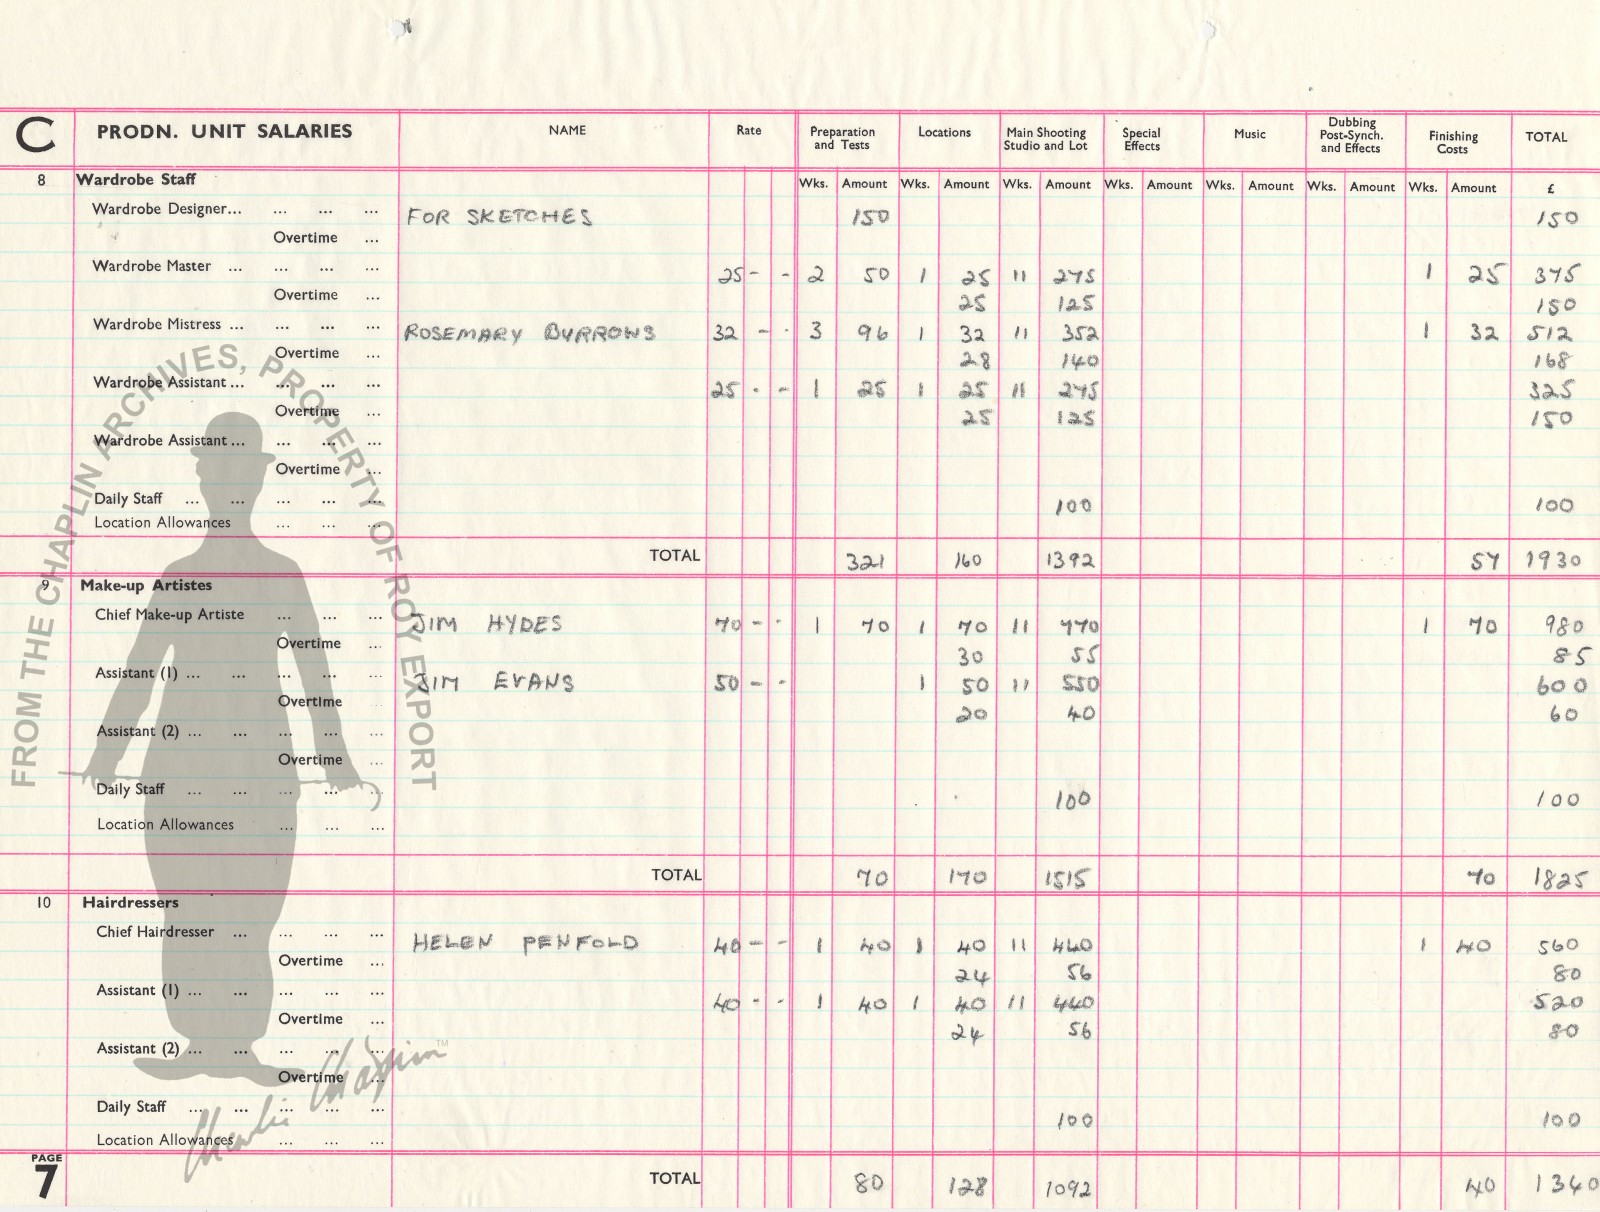 C PRODN. UNIT SALARIES NAME Rate Preparation and Tests Locations Main Shooting Studio and Lot Special Effects Music Dubbing Post-Synch. and Effects Finishing Costs TOTAL
8 Wardrobe Staff Wks. Amount Wks. Amount Wks. Amount Wks. Amount Wks. Amount Wks. Amount Wks. Amount £
Wardrobe Designer... ... ... ... FOR SKETCHES 150 150
Overtime ...
Wardrobe Master ... ... ... ... 25 - - 2 50 1 25 11 275 1 25 375
Overtime ... 25 125 150
Wardrobe Mistress ... ... ... ... ROSEMARY BURROWS 32 - - 3 96 1 32 11 352 1 32 512
Overtime ... 28 140 168
Wardrobe Assistant ... ... ... ... 25 - - 1 25 1 25 11 275 325
Overtime ... 25 125 150
Wardrobe Assistant ... ... ... ...
Overtime ...
Daily Staff ... ... ... ... ... 100 100
Location Allowances ... ... ...
TOTAL 321 160 1392 57 1930
9 Make-up Artistes
Chief Make-up Artiste ... ... ... JIM HYDES 70 - - 1 70 1 70 11 770 1 70 980
Overtime ... 30 55 85
Assistant (1) ... ... ... ... ... JIM EVANS 50 - - 1 50 11 550 600
Overtime ... 20 40 60
Assistant (2) ... ... ... ... ...
Overtime ...
Daily Staff ... ... ... ... ... 100 100
Location Allowances ... ... ...
TOTAL 70 170 1515 70 1825
10 Hairdressers
Chief Hairdresser ... ... ... ... HELEN PENFOLD 40 - - 1 40 1 40 11 440 1 40 560
Overtime ... 24 56 80
Assistant (1) ... ... ... ... ... 40 - - 1 40 1 40 11 440 520
Overtime ... 24 56 80
Assistant (2) ... ... ... ... ...
Overtime ...
Daily Staff ... ... ... ... ... 100 100
Location Allowances ... ... ...
PAGE 7 TOTAL 80 128 1092 40 1340
FROM THE CHAPLIN ARCHIVES, PROPERTY OF ROY EXPORT
Charlie Chaplin™